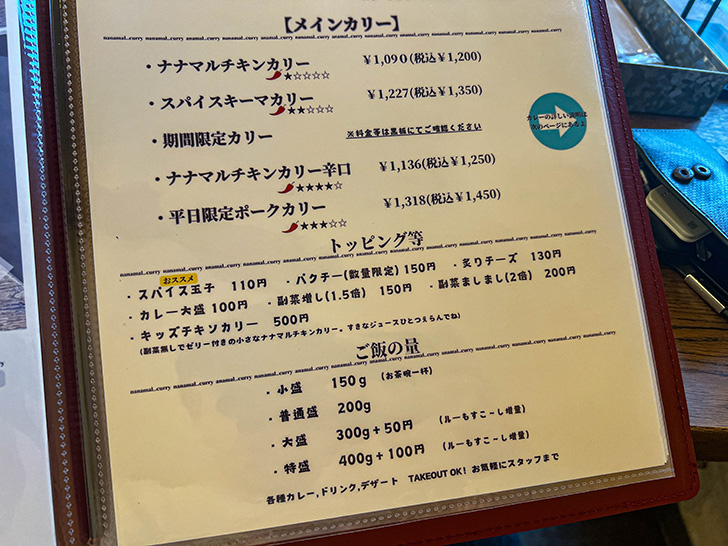 【メインカリー】
nanamal..curry nanamal..curry nanamal..curry nanamal..curry nanamal..curry nanamal..curry nanamal..curry nanamal..curry nanamal..curry nanamal..curry
・ナナマルチキンカリー ¥1,090(税込¥1,200)
🌶★☆☆☆☆
・スパイスキーマカリー ¥1,227(税込¥1,350)
🌶★★☆☆☆
・期間限定カリー ※料金等は黒板にてご確認ください
カレーの詳しい説明は
次のページにあるよ
・ナナマルチキンカリー辛口 ¥1,136(税込¥1,250)
🌶★★★★☆
・平日限定ポークカリー ¥1,318(税込¥1,450)
🌶★★★☆☆
トッピング等
nanamal..curry nanamal..curry nanamal..curry nanamal..curry nanamal..curry nanamal..curry nanamal..curry nanamal..curry nanamal..curry nanamal..curry
おススメ
・スパイス玉子 110円 ・パクチー(数量限定) 150円 ・炙りチーズ 130円
・カレー大盛 100円 ・副菜増し(1.5倍) 150円 ・副菜ましまし(2倍) 200円
・キッズチキンカリー 500円
(副菜無しでゼリー付きの小さなナナマルチキンカリー。すきなジュースひとつえらんでね)
ご飯の量
nanamal..curry nanamal..curry nanamal..curry nanamal..curry nanamal..curry nanamal..curry nanamal..curry nanamal..curry nanamal..curry nanamal..curry
・小盛 150g (お茶碗一杯)
・普通盛 200g
・大盛 300g+50円 (ルーもすこ~し増量)
・特盛 400g+100円 (ルーもすこ~し増量)
各種カレー,ドリンク,デザート TAKEOUT OK! お気軽にスタッフまで